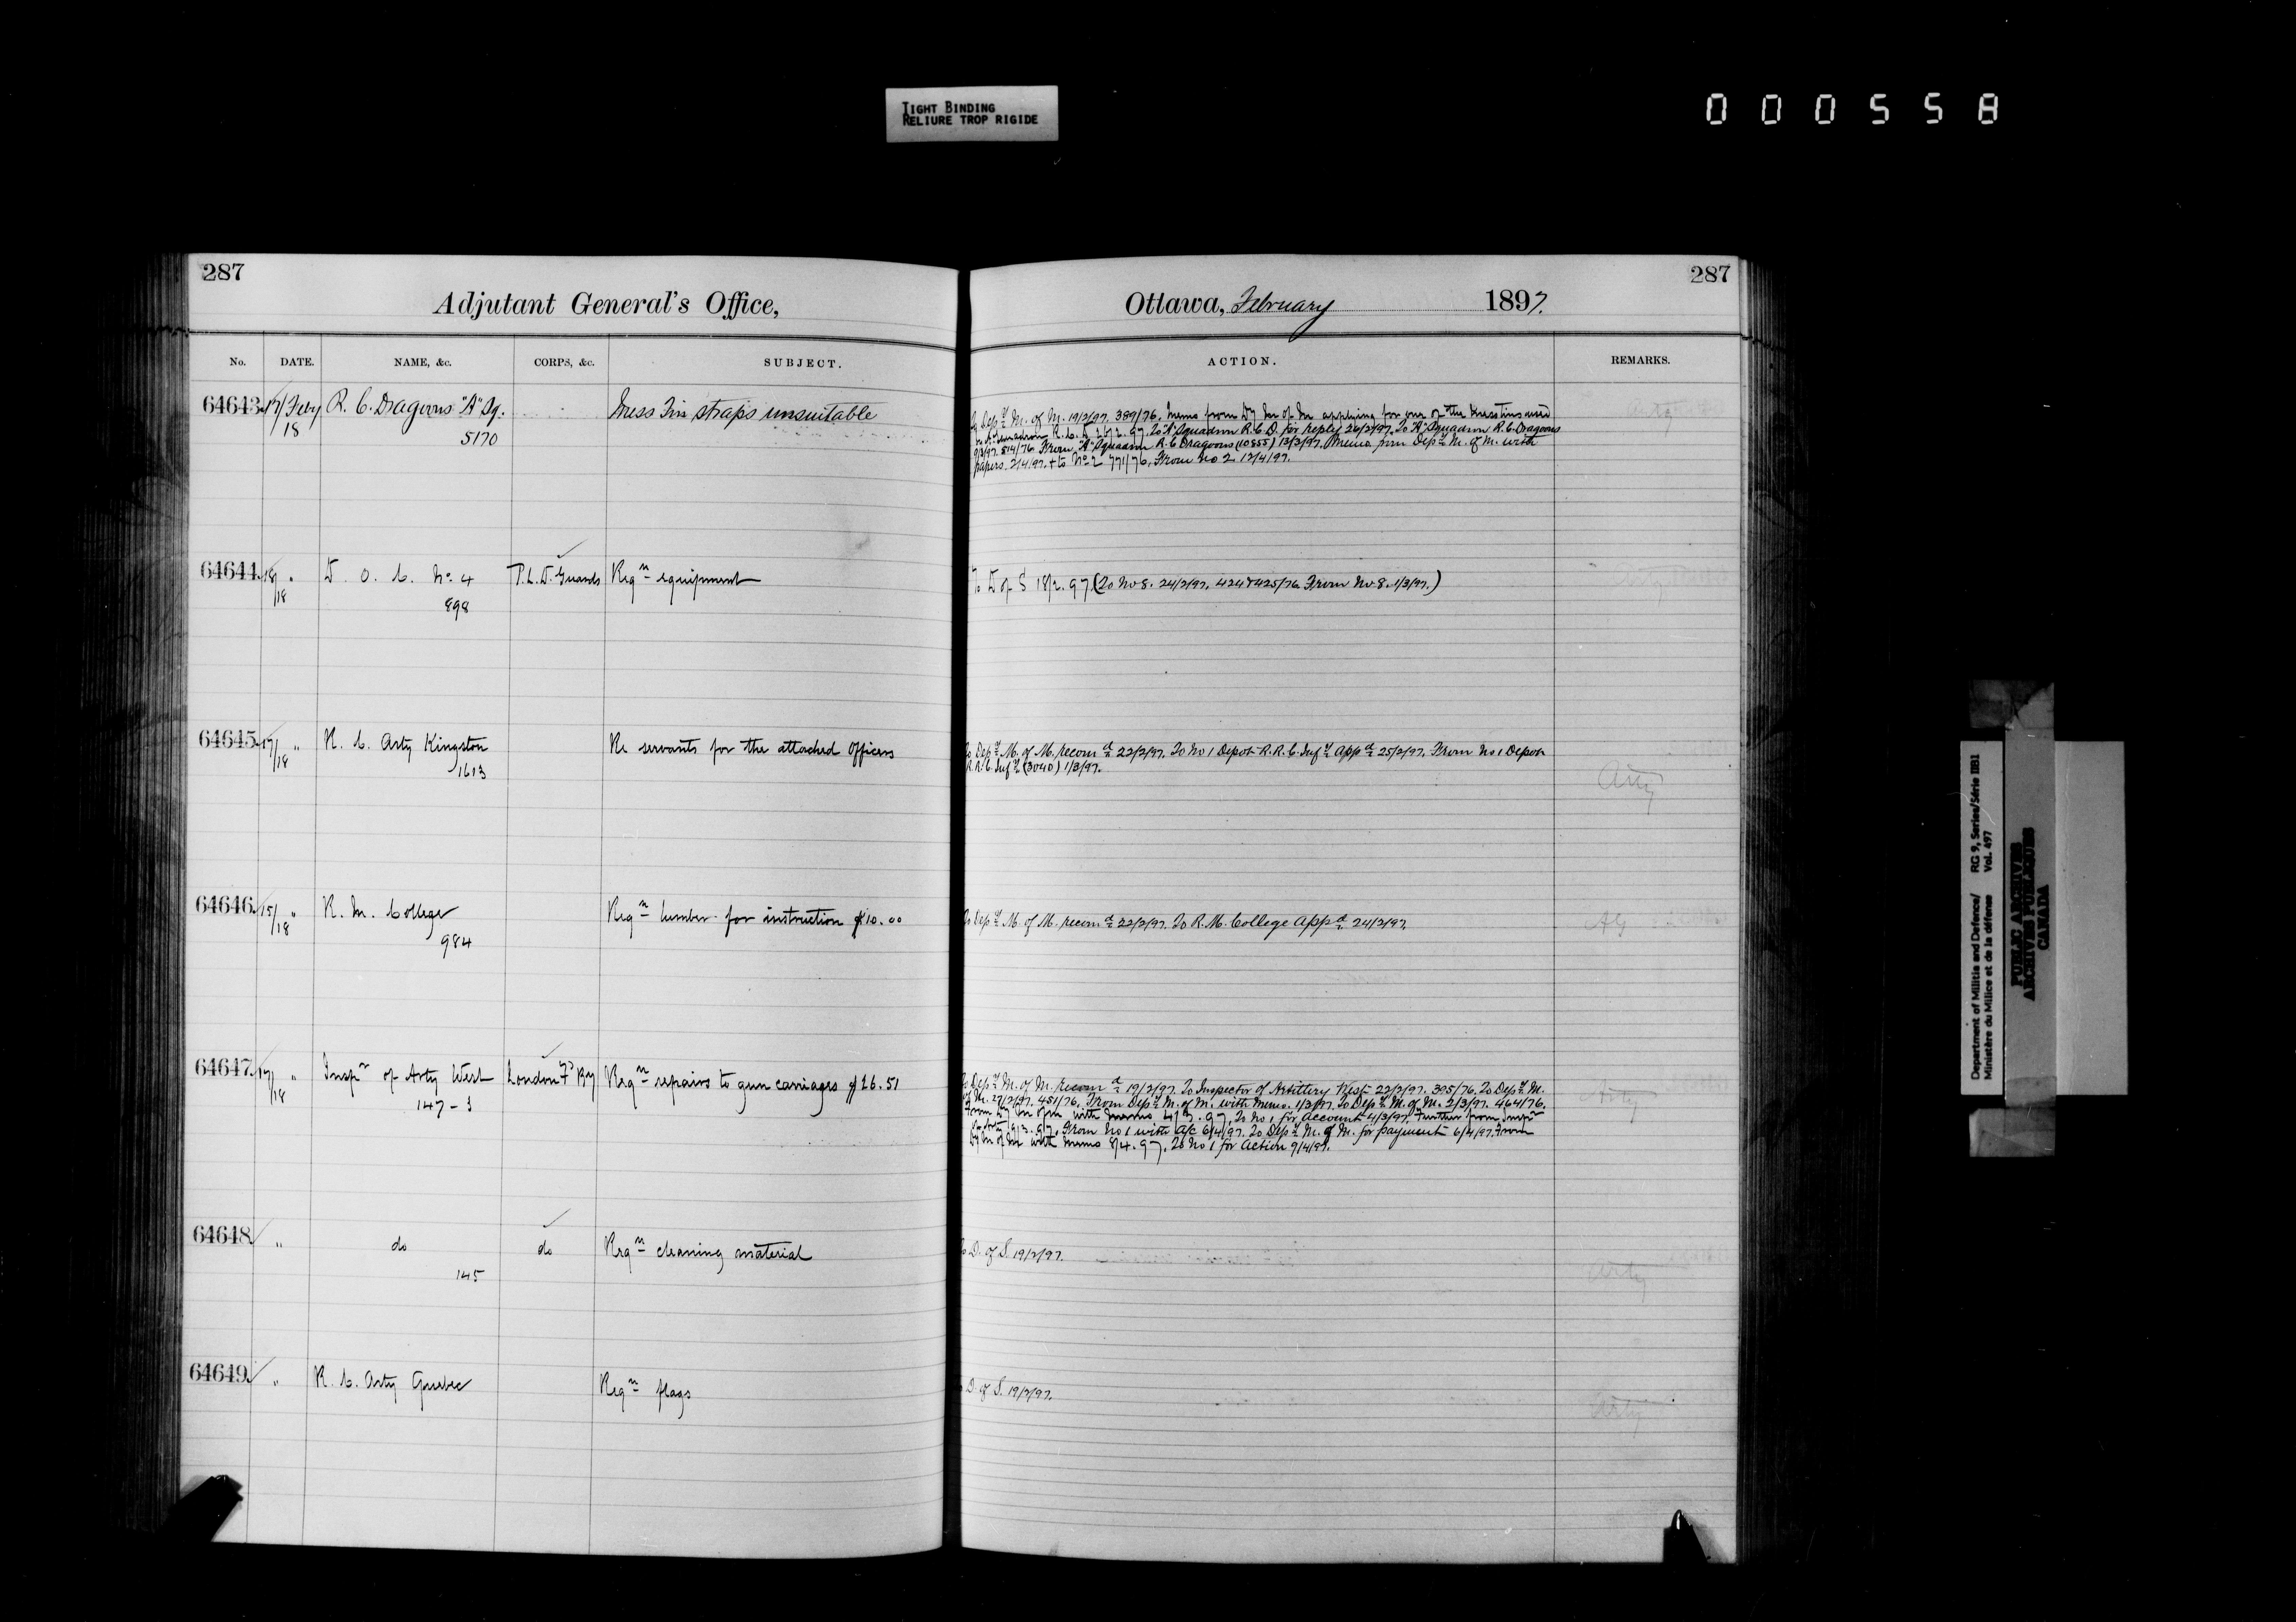 TIGHT BINDING
RELIURE TROP RIGIDE
000558
287
287
Adjutant General's Office,
Ottawa, February 1897.
No. DATE. NAME, &c. CORPS, &c. SUBJECT. ACTION. REMARKS.
64643. 17/18 Feby R. C. Dragoons "A" Sq. Mess Tin straps unsuitable
5170
To Depy M. of M. 19/2/97. 389/76. Memo from Dy M of M applying for one of the Mess tins used
in "A" Squadron R.C.D. To "A" Squadron R.C.D. for reply 26/2/97. To "A" Squadron R.C. Dragoons
9/3/97. 514/76 From "A" Squadron R.C. Dragoons (10855) 13/3/97. Memo from Depy M. of M. with
papers. 2/4/97. + to No 2 771/76. From No 2 12/4/97.
Arty
64644. 18/18 " D. O. C. No. 4 P.L.D. Guards Reqn equipment
898
To D of S 18/2.97. (To No 8. 24/2/97. 424 & 425/76. From No 8. 1/3/97.)
Arty
64645. 17/18 " R. C. Arty Kingston Re servants for the attached Officers
1613
To Depy M. of M. recomd 22/2/97. To No 1 Depot R.R.C. Infy Appd 25/2/97. From No 1 Depot
R.R.C. Infy (3040) 1/3/97.
Arty
64646. 15/18 " R. M. College Reqn lumber for instruction $10.00
984
To Depy M. of M. recomd 22/2/97. To R.M. College Appd 24/2/97.
AG
64647. 17/18 " Inspr of Arty West London Fd By Reqn repairs to gun carriages $26.51
147-3
To Depy M. of M. recomd 19/2/97. To Inspector of Artillery West 22/2/97. 395/76. To Depy M.
of M. 27/2/97. 451/76. From Depy M. of M. with Memo. 1/3/97. To Depy M. of M. 2/3/97. 464/76.
From Dy M of M with memo 4/3.97. To No 1 for Account 4/3/97. Further from Inspr
From No 1 with A/c 6/4/97. To Depy M. of M. for payment 6/4/97. From
Dy M of M with memo 8/4.97. To No 1 for Action 9/4/97.
Arty
64648. " do do Reqn cleaning material
145
To D. of S. 19/2/97.
Arty
64649. " R. C. Arty Quebec Reqn flags
D. of S. 19/2/97.
Arty
Department of Militia and Defence/ RG 9, Series/Série IIB1
Ministère du Milice et de la défense Vol. 497
PUBLIC ARCHIVES
ARCHIVES PUBLIQUES
CANADA